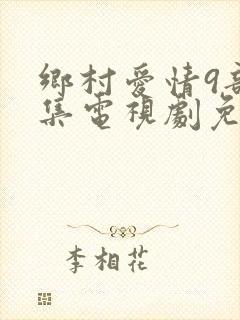 鄉村愛情9部
集電視劇免
李相花